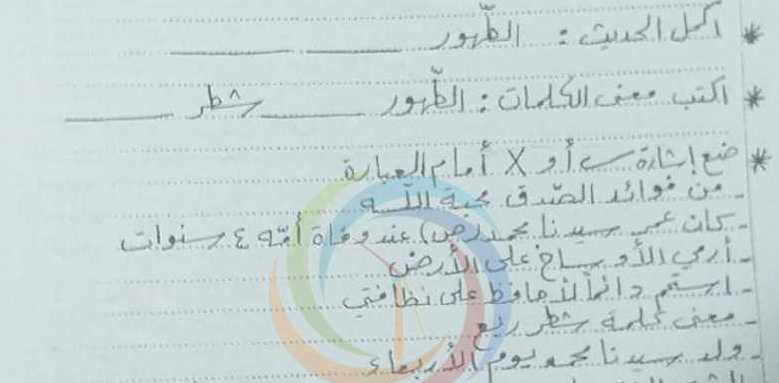 * اكمل الحديث : الطّهور ____ ____ ____
* اكتب معنى الكلمات : الطّهور ____ شطر ____
* ضع إشارة ✓ أو X أمام العبارة
- من فوائد الصّدق محبة اللّه
- كان عمر سيدنا محمد (ص) عند وفاة أمّه ٤ سنوات
- أرمي الأوساخ على الأرض
- استحم دائماً لأحافظ على نظافتي
- معنى كلمة شطر ربع
- ولد سيدنا محمد يوم الأربعاء